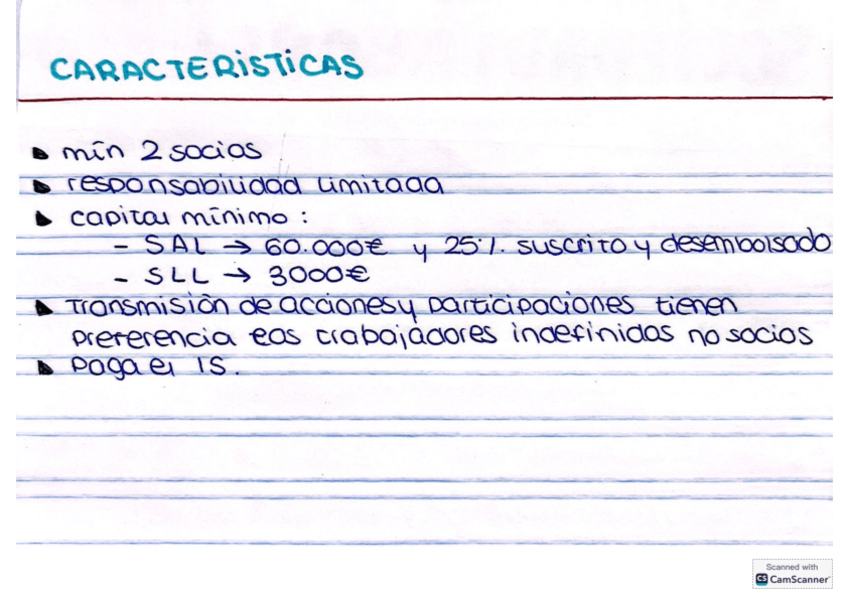 CARACTERíSTiCAS
mín 2 socios
responsabilidad limitada
capital mínimo :
- SAL → 60.000€ y 25% suscrito y desembolsado
- SLL → 3000€
Transmisión de acciones y participaciones tienen
preferencia los trabajadores indefinidos no socios
Paga el IS.
Scanned with
CS CamScanner